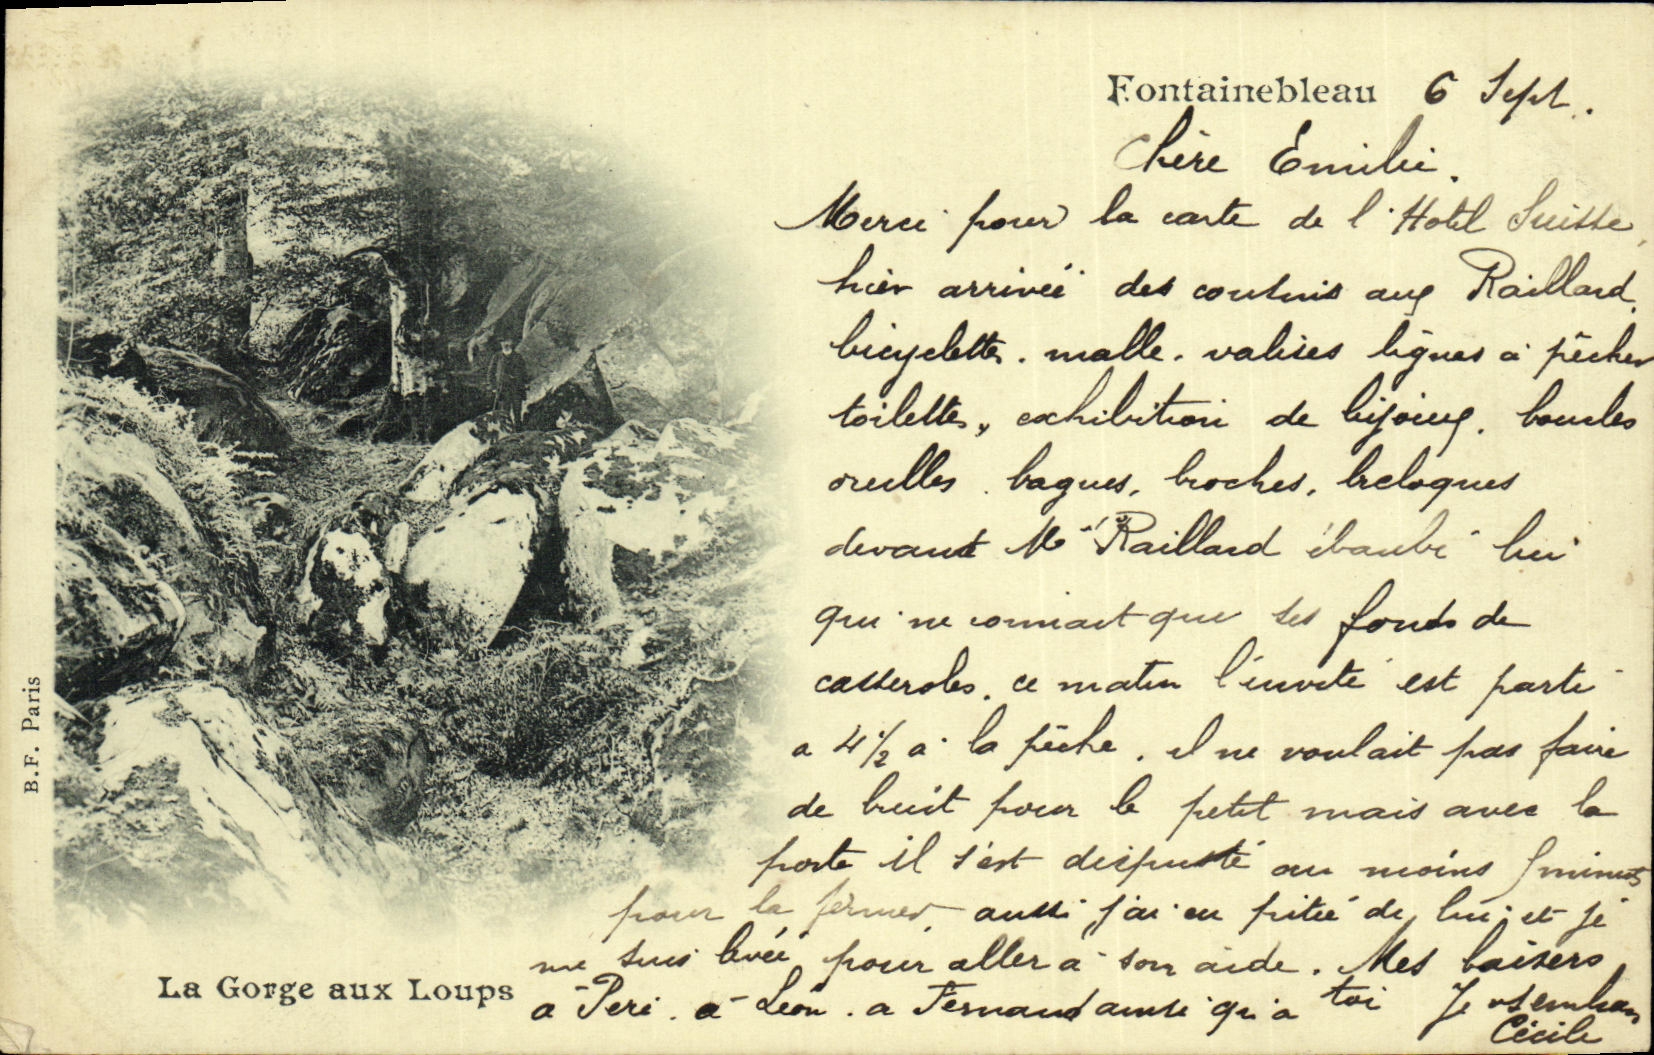 Fontainebleau 6 Sept.
Chère Emilie.
Merci pour la carte de l'Hotel Suisse,
hier arrivée des cousins aux Raillard.
bicyclette. malle. valises lignes à pêcher
toilettes, exhibition de bijoux. boucles
oreilles. bagues, broches, breloques
devant Mr Raillard ébaubi lui
qui ne connait que ses fonds de
casseroles. ce matin l'invité est parti
a 4 1/2 a la pêche. il ne voulait pas faire
de bruit pour le petit mais avec la
porte il s'est disputé au moins 5 minutes
pour la fermer aussi j'ai eu pitié de lui et je
me suis levée pour aller à son aide. Mes baisers
à Peri. à Léon. a Fernand ainsi qu'a toi Je
Cécile
La Gorge aux Loups
B.F. Paris